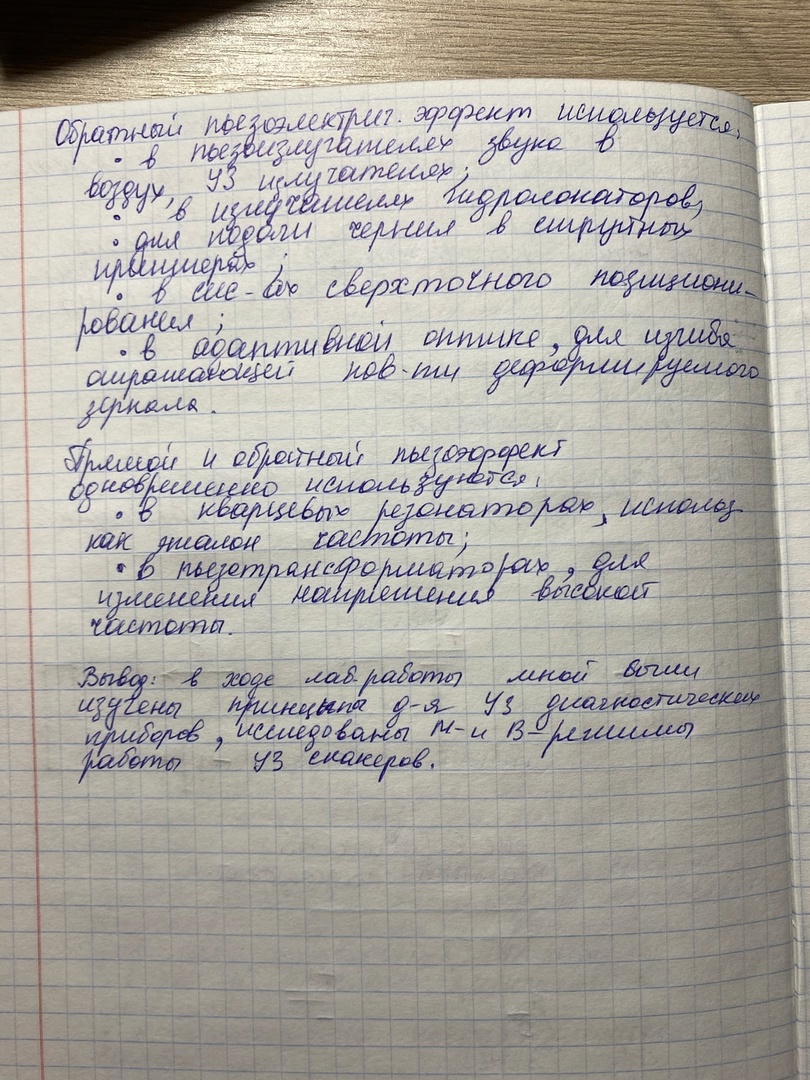 Обратный пьезоэлектрич. эффект используется:
• в пьезоизлучателях звука в
воздух, УЗ излучателях;
• в излучателях гидролокаторов;
• для подачи чернил в струйных
принтерах;
• в сис-ах сверхточного позициони-
рования;
• в адаптивной оптике, для изгиба
отражающей пов-ти деформируемого
зеркала.
Прямой и обратный пьезоэффект
одновременно используются:
• в кварцевых резонаторах, использ
как эталон частоты;
• в пьезотрансформаторах, для
изменения напряжения высокой
частоты.
Вывод: в ходе лаб. работы мной были
изучены принципы д-я УЗ диагностических
приборов, исследованы М- и В-режимы
работы УЗ сканеров.